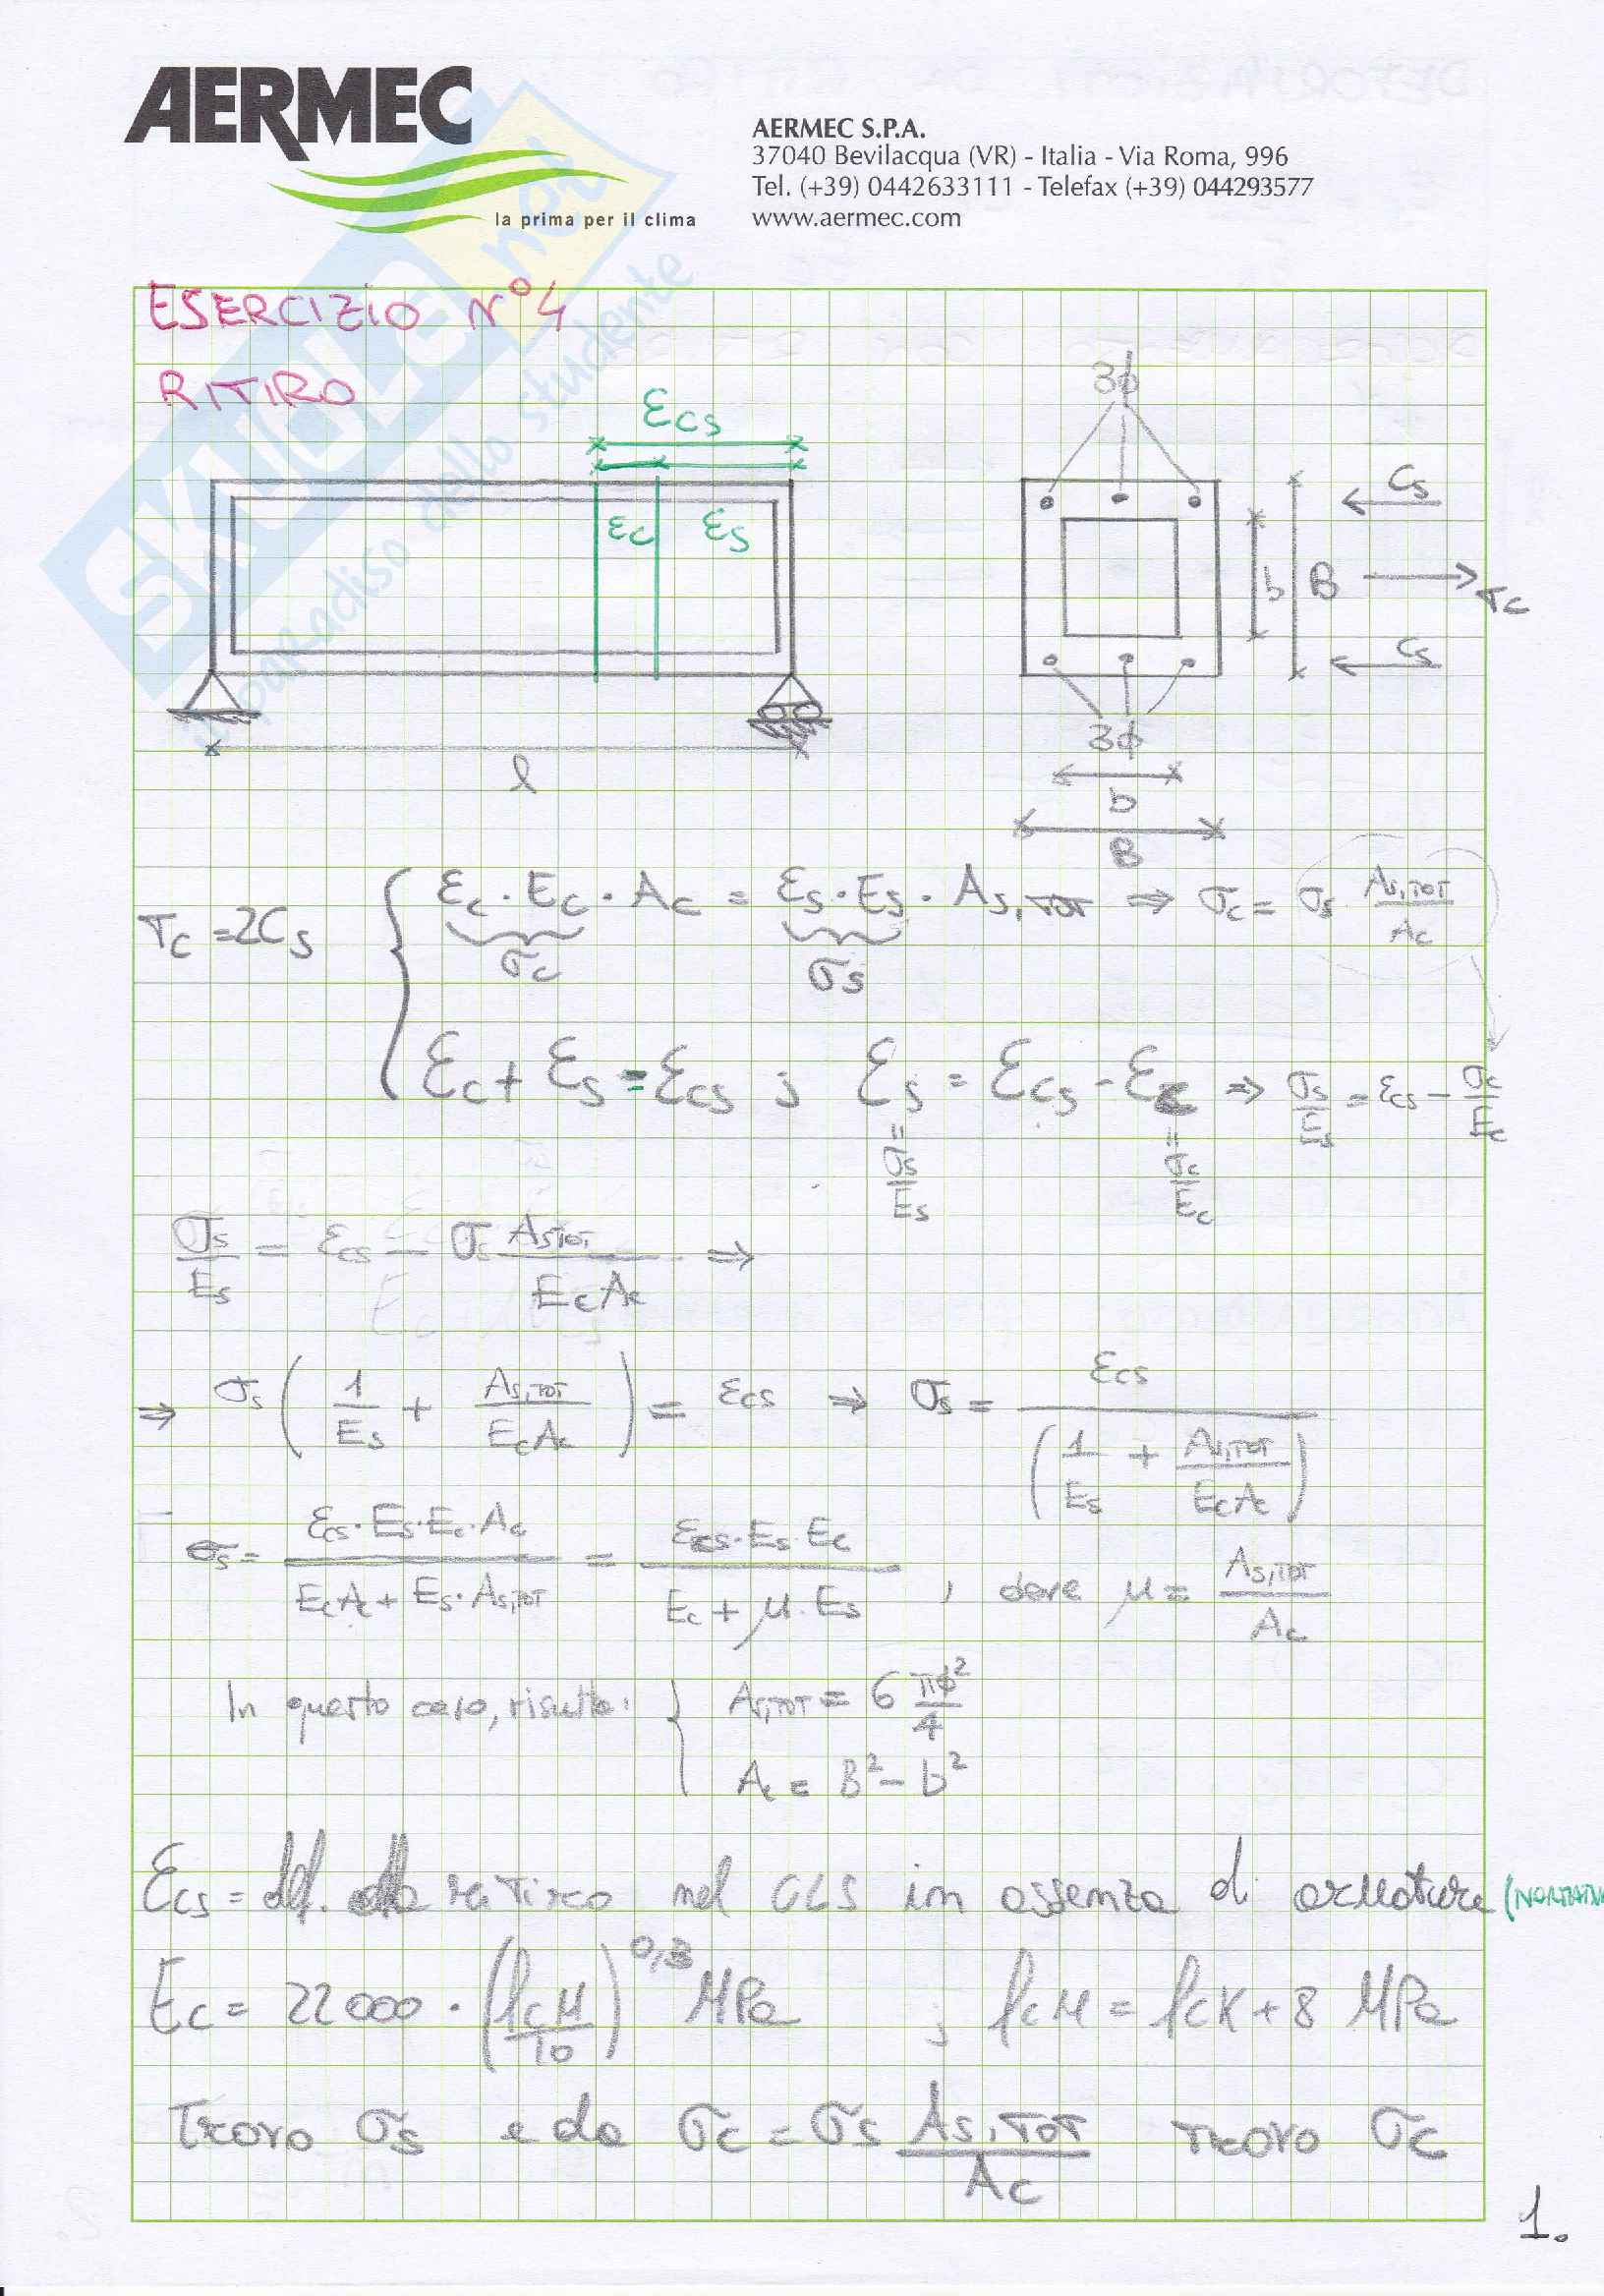 AERMEC
la prima per il clima
AERMEC S.P.A.
37040 Bevilacqua (VR) - Italia - Via Roma, 996
Tel. (+39) 0442633111 - Telefax (+39) 044293577
www.aermec.com
SKUOLA.net
il paradiso dello studente
ESERCIZIO N°4
RITIRO
εcs
εc εs
l
3ϕ
3ϕ
b B
b
B
Cs
Tc
Cs
Tc = 2Cs
εc · Ec · Ac = εs · Es · As,TOT ⇒ σc = σs As,TOT / Ac
σc σs
εc + εs = εcs ; εs = εcs - εc ⇒ σs/Es = εcs - σc/Ec
= σs/Es = σc/Ec
σs/Es = εcs - σs As,TOT / EcAc ⇒
⇒ σs ( 1/Es + As,TOT/EcAc ) = εcs ⇒ σs = εcs / ( 1/Es + As,TOT/EcAc )
σs = εcs·Es·Ec·Ac / EcAc + Es·As,TOT = εcs·Es·Ec / Ec + μ·Es , dove μ = As,TOT / Ac
In questo caso, risulta: As,TOT = 6 πϕ²/4
Ac = B² - b²
εcs = def. da ritiro nel CLS in assenza di armature
Ec = 22000 · (fcM/10)^0,3 MPa ; fcM = fcK + 8 MPa
Trovo σs e da σc = σs As,TOT / Ac trovo σc
1.